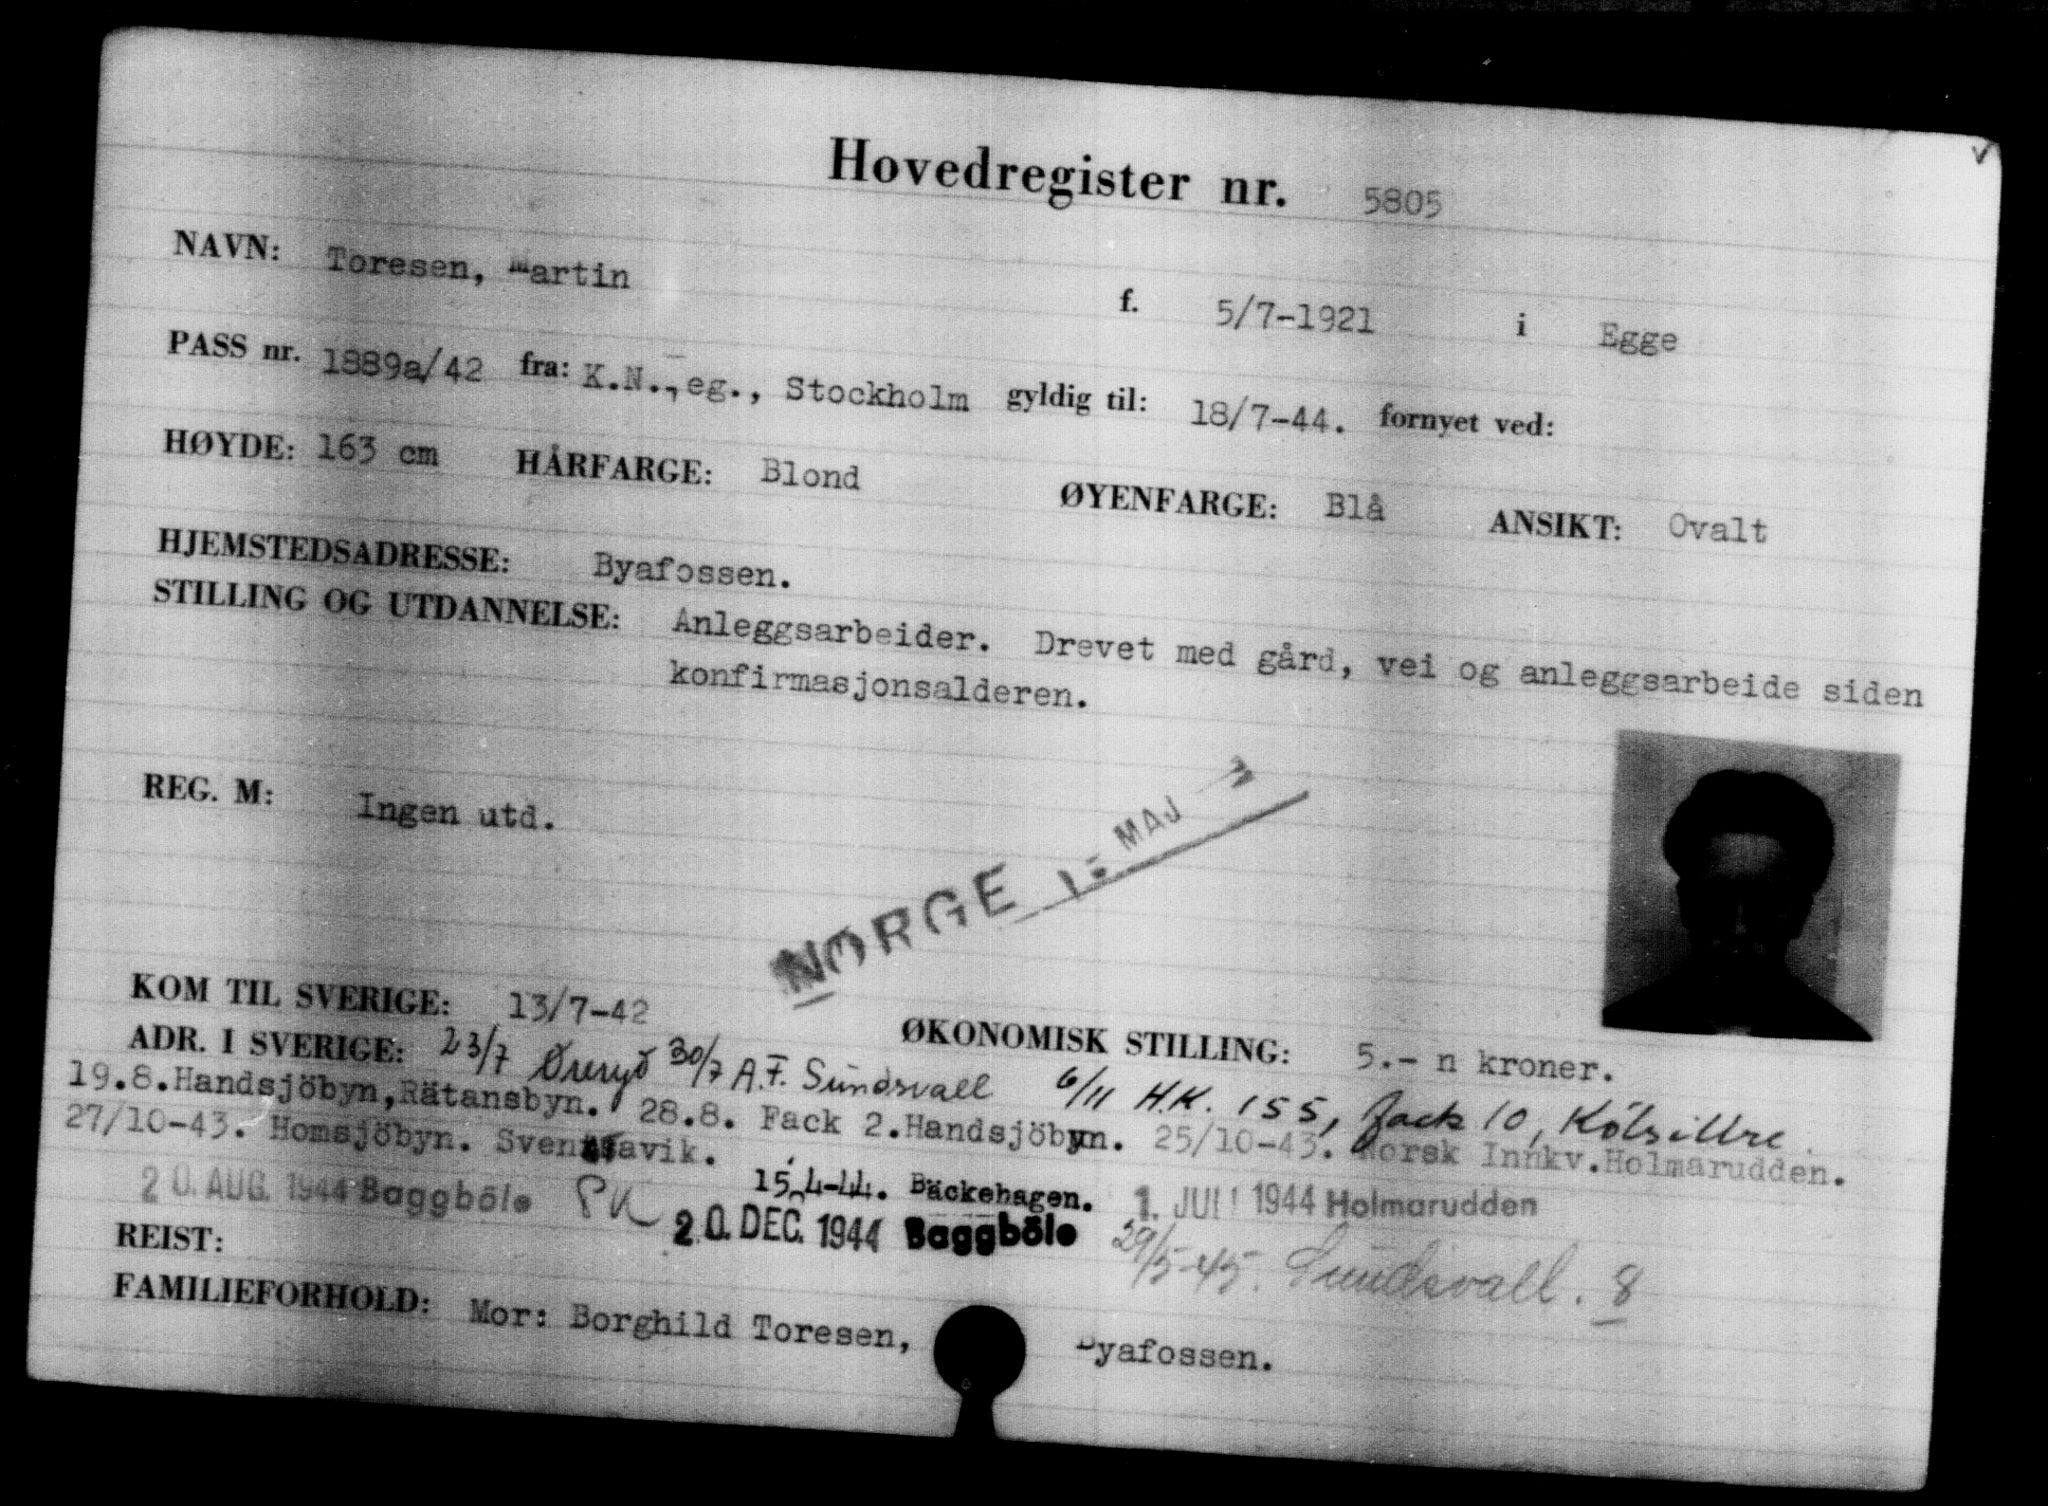 Hovedregister nr. 5805
NAVN: Toresen, Martin f. 5/7-1921 i Egge
PASS nr. 1889a/42 fra: K.N.,eg., Stockholm gyldig til: 18/7-44. fornyet ved:
HØYDE: 163 cm HÅRFARGE: Blond ØYENFARGE: Blå ANSIKT: Ovalt
HJEMSTEDSADRESSE: Byafossen.
STILLING OG UTDANNELSE: Anleggsarbeider. Drevet med gård, vei og anleggsarbeide siden
konfirmasjonsalderen.
REG. M: Ingen utd.
NORGE MAJ
KOM TIL SVERIGE: 13/7-42 ØKONOMISK STILLING: 5.- n kroner.
ADR. I SVERIGE: 23/7 Øreryd 30/7 A.F. Sundsvall 6/11 H.K. 155, Fack 10, Kölsillre.
19.8.Handsjöbyn,Rätansbyn. 28.8. Fack 2.Handsjöbyn. 25/10-43. Norsk Innkv.Holmarudden.
27/10-43. Homsjöbyn. Svenstavik. 15.4-44. Bäckehagen. 1. JULI 1944 Holmarudden
20. AUG. 1944 Baggböle PK 20. DEC. 1944 Baggböle 29/5-45. Sundsvall. 8
REIST:
FAMILIEFORHOLD: Mor: Borghild Toresen, Byafossen.